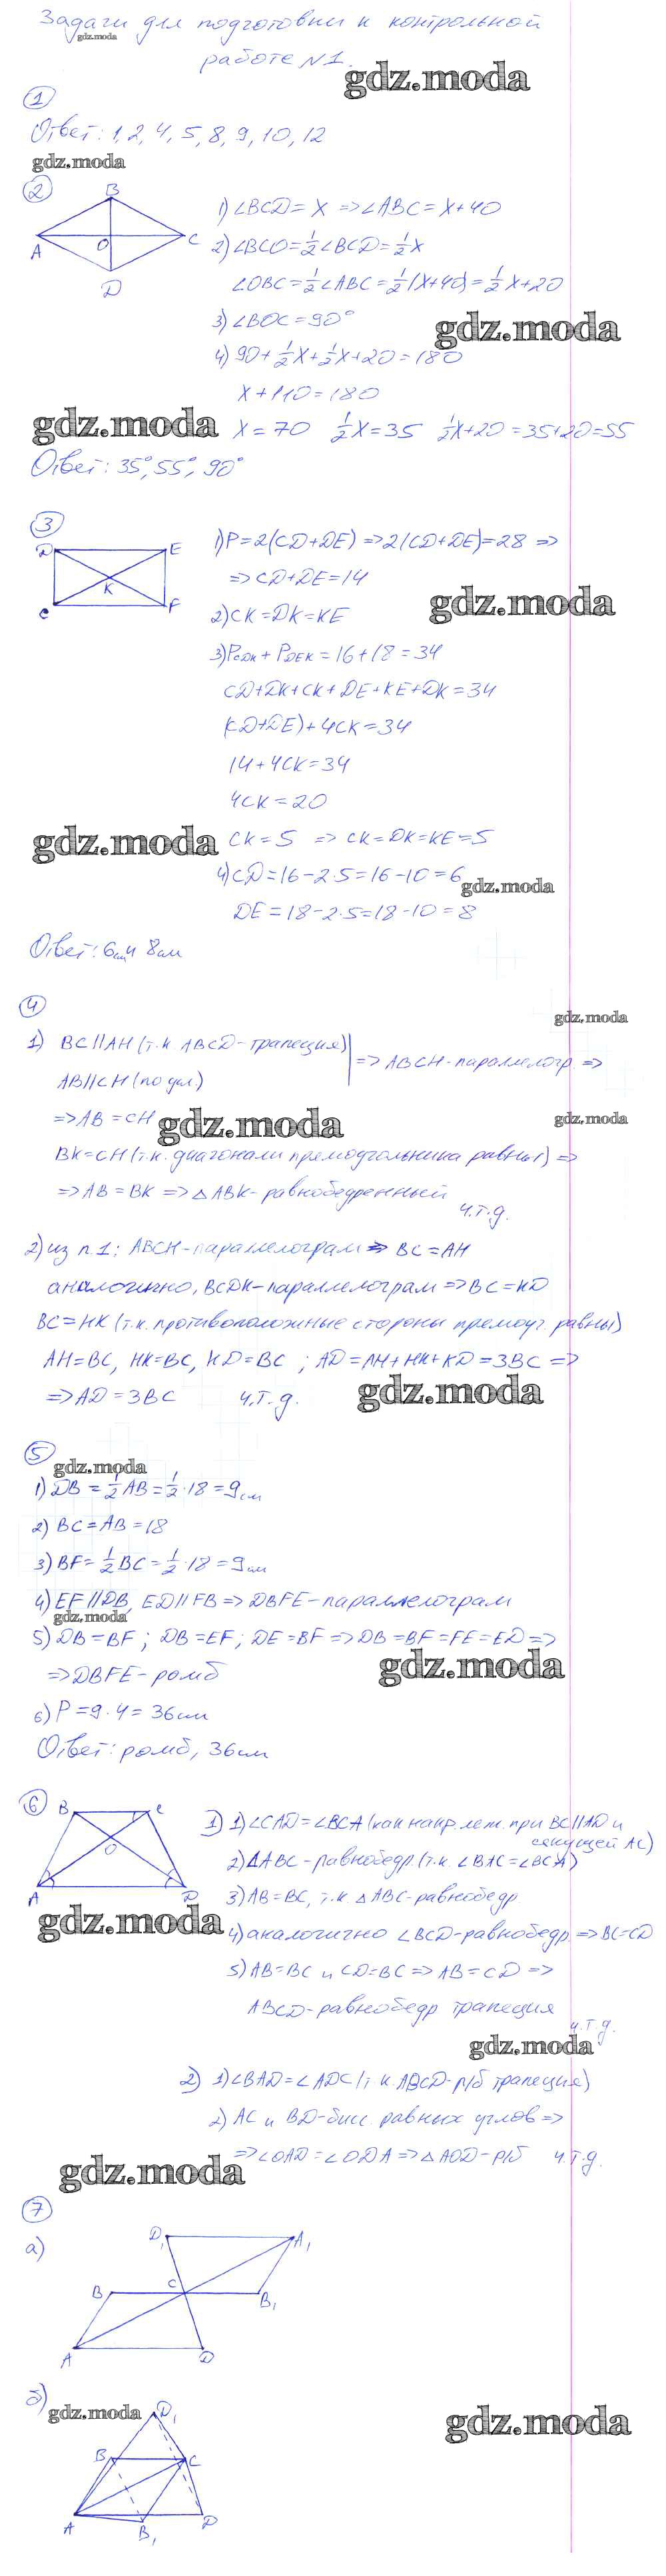 Задачи для подготовки к контрольной
gdz.moda
работе №1.
gdz.moda
1
Ответ: 1, 2, 4, 5, 8, 9, 10, 12
gdz.moda
2
B
A
O
C
D
1) ∠BCD = x => ∠ABC = x+40
2) ∠BCO = 1/2 ∠BCD = 1/2 x
∠OBC = 1/2 ∠ABC = 1/2 (x+40) = 1/2 x+20
3) ∠BOC = 90°
gdz.moda
4) 90 + 1/2 x + 1/2 x + 20 = 180
x + 110 = 180
gdz.moda
x = 70 1/2 x = 35 1/2 x+20 = 35+20 = 55
Ответ: 35°, 55°, 90°
3
D
E
K
C
F
1) P = 2(CD+DE) => 2(CD+DE) = 28 =>
=> CD+DE = 14
gdz.moda
2) CK = DK = KE
3) PCDK + PDEK = 16+18 = 34
CD+DK+CK+DE+KE+DK = 34
(CD+DE)+4CK = 34
14+4CK = 34
4CK = 20
gdz.moda
CK = 5 => CK = DK = KE = 5
4) CD = 16-2·5 = 16-10 = 6
gdz.moda
DE = 18-2·5 = 18-10 = 8
Ответ: 6см и 8см
4
gdz.moda
1) BC∥AH (т.к ABCD-трапеция)
AB∥CH (по усл.)
=> ABCH-параллелогр. =>
=> AB = CH
gdz.moda
gdz.moda
BK = CH (т.к. диагонали прямоугольника равны) =>
=> AB = BK => △ABK-равнобедренный
ч.т.д.
2) из п.1: ABCH-параллелограм => BC = AH
аналогично, BCDK-параллелограм => BC = KD
BC = HK (т.к. противоположные стороны прямоуг. равны)
AH = BC, HK = BC, KD = BC ; AD = AH+HK+KD = 3BC =>
=> AD = 3BC ч.т.д.
gdz.moda
5
gdz.moda
1) DB = 1/2 AB = 1/2 · 18 = 9см
2) BC = AB = 18
3) BF = 1/2 BC = 1/2 · 18 = 9см
4) EF∥DB, ED∥FB => DBFE-параллелограм
gdz.moda
5) DB = BF ; DB = EF ; DE = BF => DB = BF = FE = ED =>
=> DBFE-ромб
gdz.moda
6) P = 9·4 = 36см
Ответ: ромб, 36см
6
B
C
O
A
D
1) 1) ∠CAD = ∠BCA (как накр. леж. при BC∥AD и
секущей AC)
2) △ABC-равнобедр (т.к. ∠BAC = ∠BCA)
3) AB = BC, т.к △ABC-равнобедр
gdz.moda
4) аналогично ∠BCD-равнобедр. => BC = CD
5) AB = BC и CD = BC => AB = CD =>
ABCD-равнобедр трапеция
ч.т.д.
gdz.moda
2) 1) ∠BAD = ∠ADC (т.к. ABCD-р/б трапеция)
2) AC и BD-бисс. равных углов =>
=> ∠OAD = ∠ODA => △AOD-р/б ч.т.д.
gdz.moda
7
а)
D1
A1
B
C
B1
A
D
б)
gdz.moda
D1
gdz.moda
B
C
A
B1
D